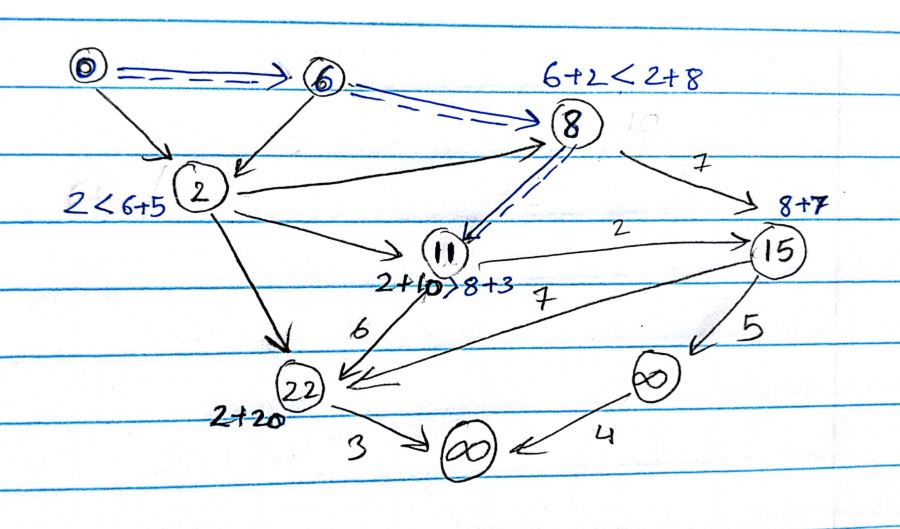 0
6
6+2<2+8
8
10
7
2
2<6+5
8+7
11
2
15
2+10>8+3
7
6
5
22
∞
2+20
3
4
∞